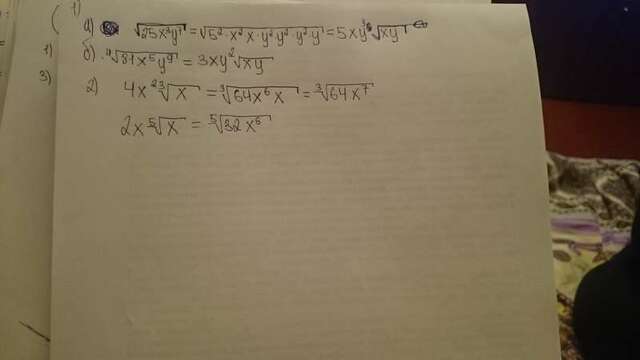 1)
а) √25x³y⁷ = √5²·x²x·y²y²·y²·y = 5xy³√xy
1) б) ⁴√81x⁵y⁹ = 3xy²√xy
3)
2) 4x²∛x = ∛64x⁶x = ∛64x⁷
2x⁵√x = ⁵√32x⁶